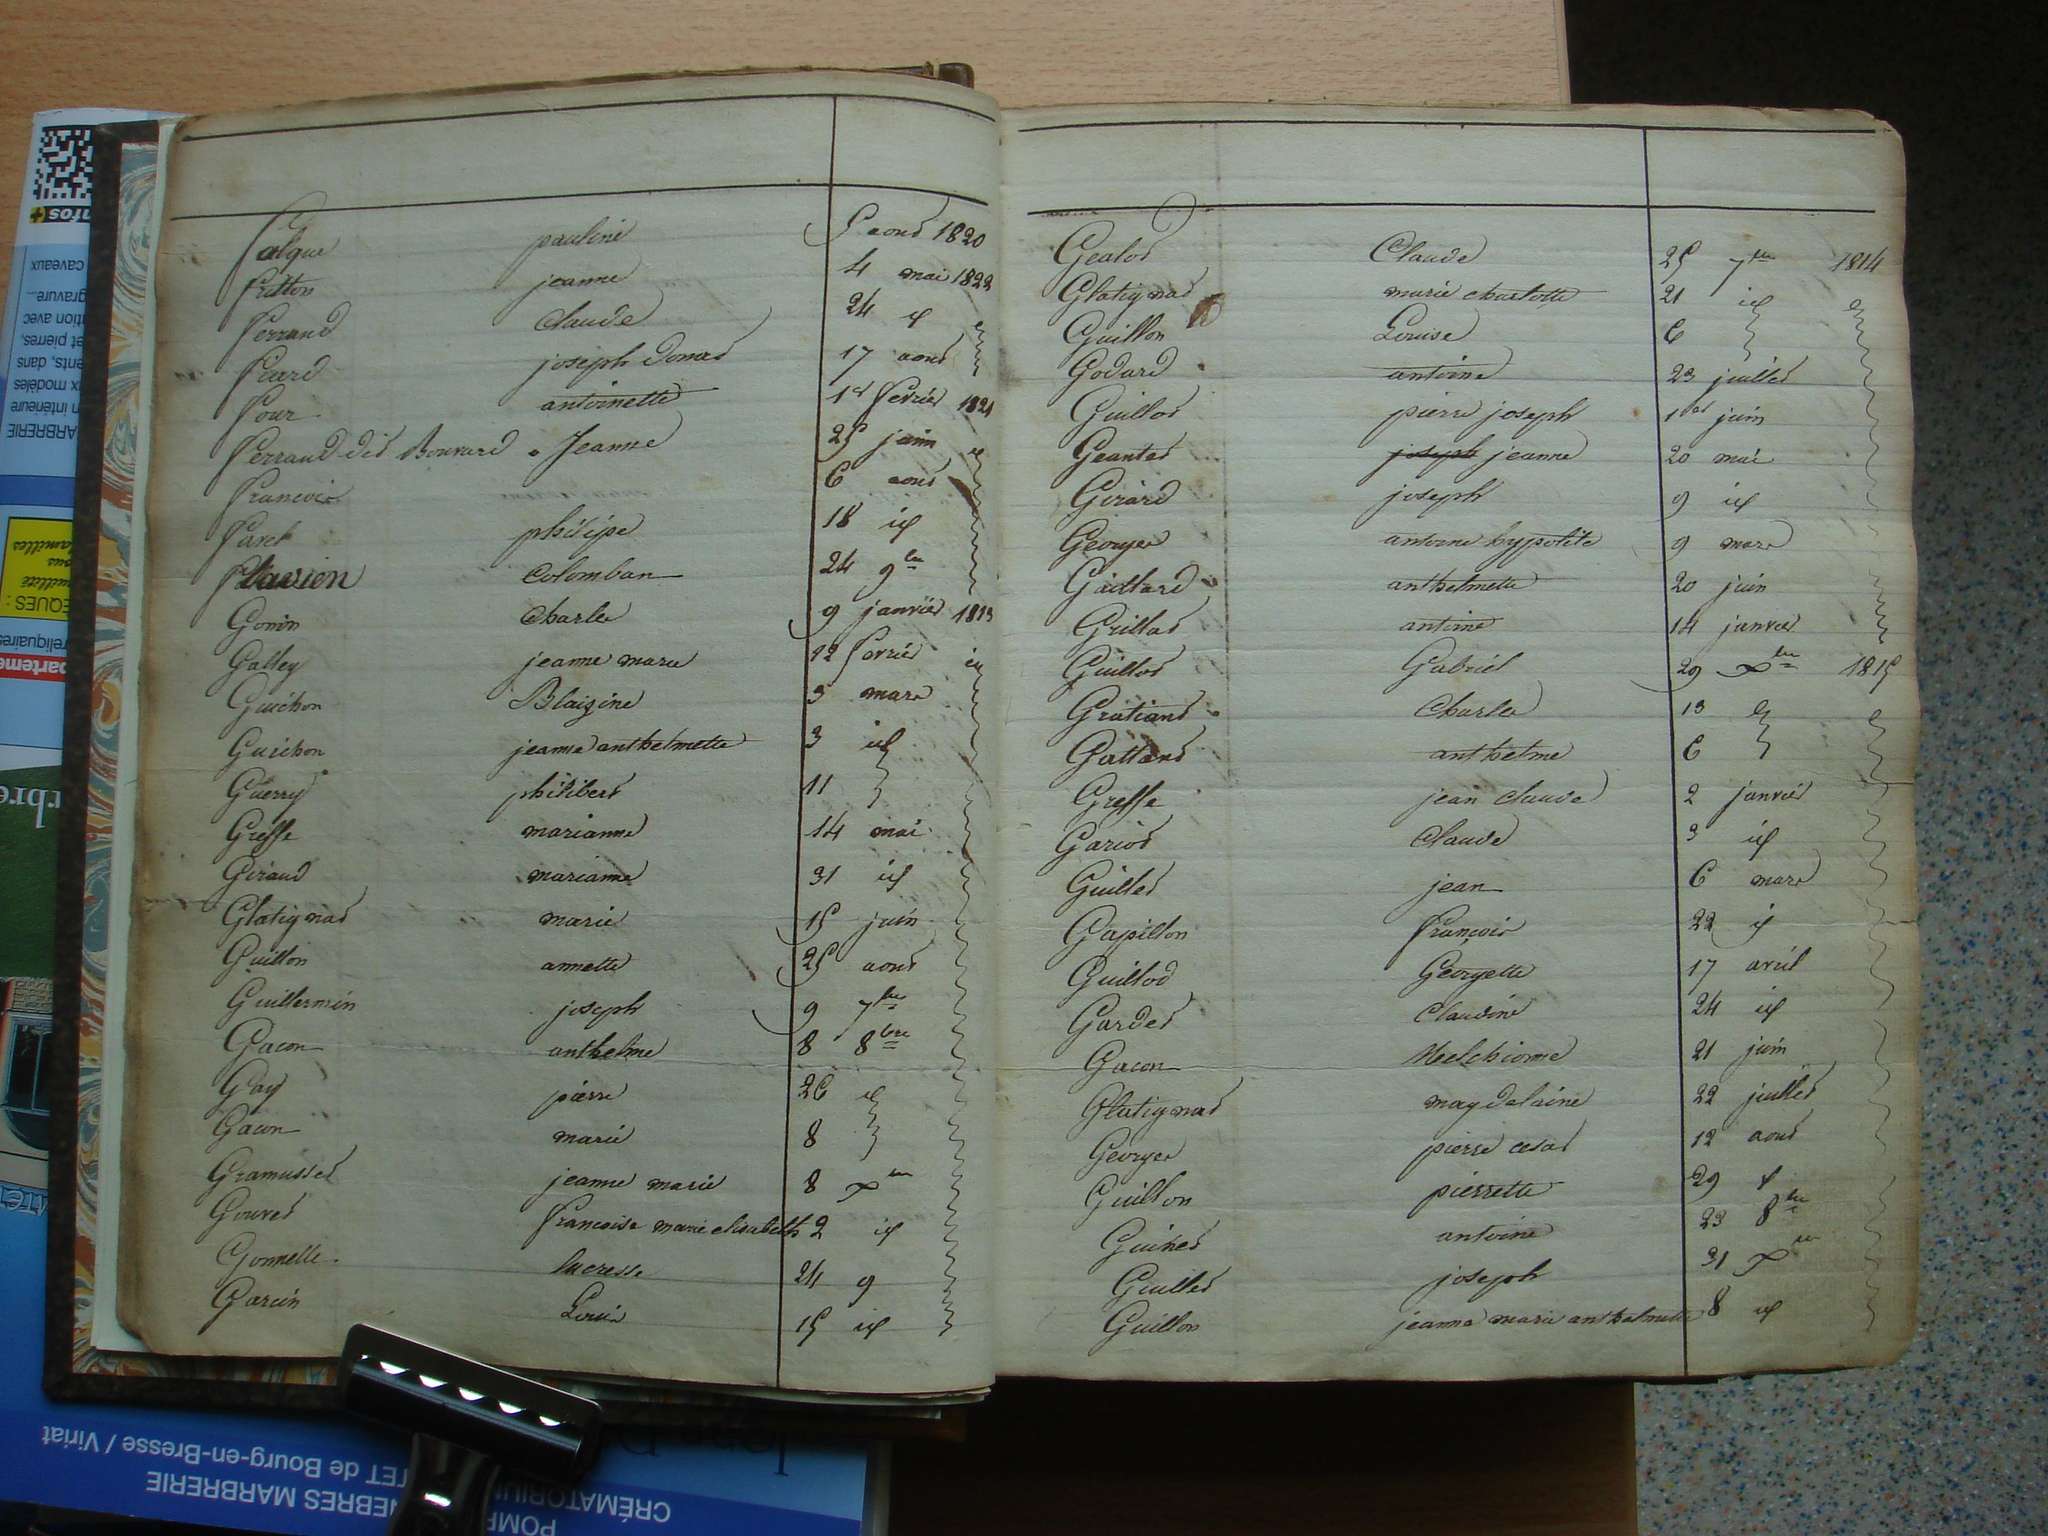 falque pauline 5 aout 1820
fritton jeanne 4 mai 1822
ferrand Claude 24 id
joseph donat 17 aout
four antoinette 1er fevrier 1821
ferrand dit Bouvard Jeanne 25 juin
francois 6 aout
favet philipe 18 id
flavien Colomban 24 9bre
Gonin Charles 9 janvier 1813
Galley jeanne marie 12 fevrier id
Guichon Blaizine 3 mars
Guichon jeanne anthelmette 3 id
Guerry philibert 11
Greffe marianne 14 mai
Giraud marianne 31 id
Glatignat marie 15 juin
Guillon annette 25 aout
Guillermin joseph 9 7bre
Gacon anthelme 8 8bre
Gay pierre 26 id
Gacon marie 8
Gramusset jeanne marie 8 Xbre
Gouvet francoise marie elisabeth 2 id
Gonnelle lucresse 24 9
Garin Louis 15 id
Gealot Claude 25 7bre 1814
Glatignat marie charlotte 21 id
Guillon Louise 6
Godard antoine 23 juillet
Guillot pierre joseph 1er juin
Geantet joseph jeanne 20 mai
Girard joseph 9 id
Georges antoine hypolite 9 mars
Gaillard anthelmette 20 juin
Grillat antoine 14 janvier
Guillot Gabriel 29 Xbre 1815
Gratiant Charles 13
Galland anthelme 6
Greffe jean claude 2 janvier
Gariot Claude 3 id
Guillet jean 6 mars
Gapillon François 22 id
Guillod Georgette 17 avril
Gardet Claudine 24 id
Gacon Melchionne 21 juin
Glatignat magdelaine 22 juillet
Georges pierre cesar 12 aout
Guillon pierrette 29
Guinet antoine 23 8bre
Guillet joseph 31 Xbre
Guillon jeanne marie anthelmette 8 id
nfos
caveaux
gravure...
tion avec
et pierres,
ents, dans
x modèles
n intérieure
ARBRERIE
familles
ous
EQUES :
reliquaires
parteme
CRÉMATORIU
POMP
NÈBRES MARBRERIE
TET de Bourg-en-Bresse / Viriat